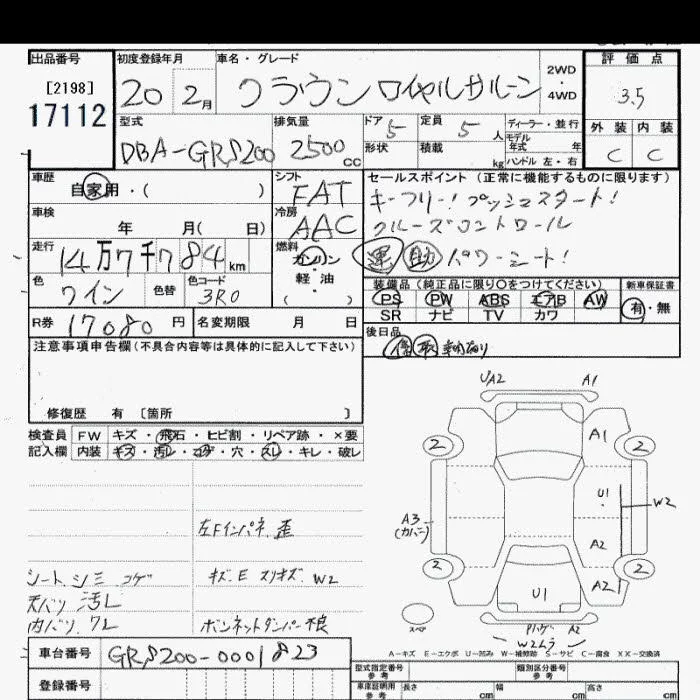 出品番号
[2198]
17112
初度登録年月
20 2月
車名・グレード
クラウン ロイヤルサルーン
2WD
・
4WD
評価点
3.5
外装 内装
C C
型式
DBA-GRS200
排気量
2500 cc
ドア 5
定員 5 人
形状
積載 kg
ディーラー・並行
モデル
年式 年
ハンドル 左・右
車歴
自家用・( )
シフト
FAT
セールスポイント (正常に機能するものに限ります)
キーフリー! プッシュスタート!
クルーズコントロール
運 助 パワーシート!
車検
年 月( 日)
冷房
AAC
走行
14万7千784km
燃料
ガソリン
・
軽油
( )
色
ワイン
色替
色コード
3R0
装備品 (純正品に限り○をつけてください)
PS PW ABS エアB AW
SR ナビ TV カワ
新車保証書
有・無
R券 17080円
名変期限 月 日
後日品
保 取
注意事項申告欄 (不具合内容等は具体的に記入して下さい)
修復歴 有 [箇所 ]
検査員 FW キズ・飛石・ヒビ割・リペア跡・×要
記入欄 内装 キズ・汚レ・コゲ・穴・スレ・キレ・破レ
左Fインパネ 歪
シート シミ コゲ
キズ.E スリキズ W2
天バリ 汚レ
内バリ スレ
ボンネットダンパー 損
UA2 A1
2 A1 2
U1
W2
A3
(カバー)
A2
2 A2 2
U1
スペア
A2
W2ムラ
A-キズ E-エクボ U-凹み W-補修跡 S-サビ C-腐食 XX-交換済
車台番号 GRS200-0001823
登録番号
型式指定番号
参考
類別区分番号
参考
車庫証明用
参考
長さ cm
幅 cm
高さ cm